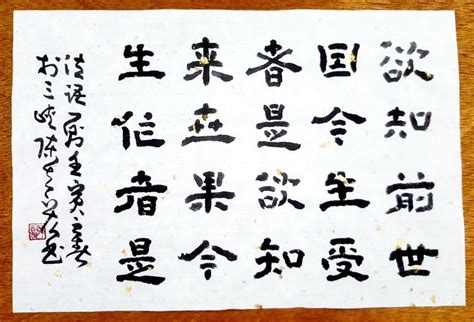 欲知前世
因今生受
者是欲知
来世果今
生作者是
法语一则壬寅春
于三峡陈书